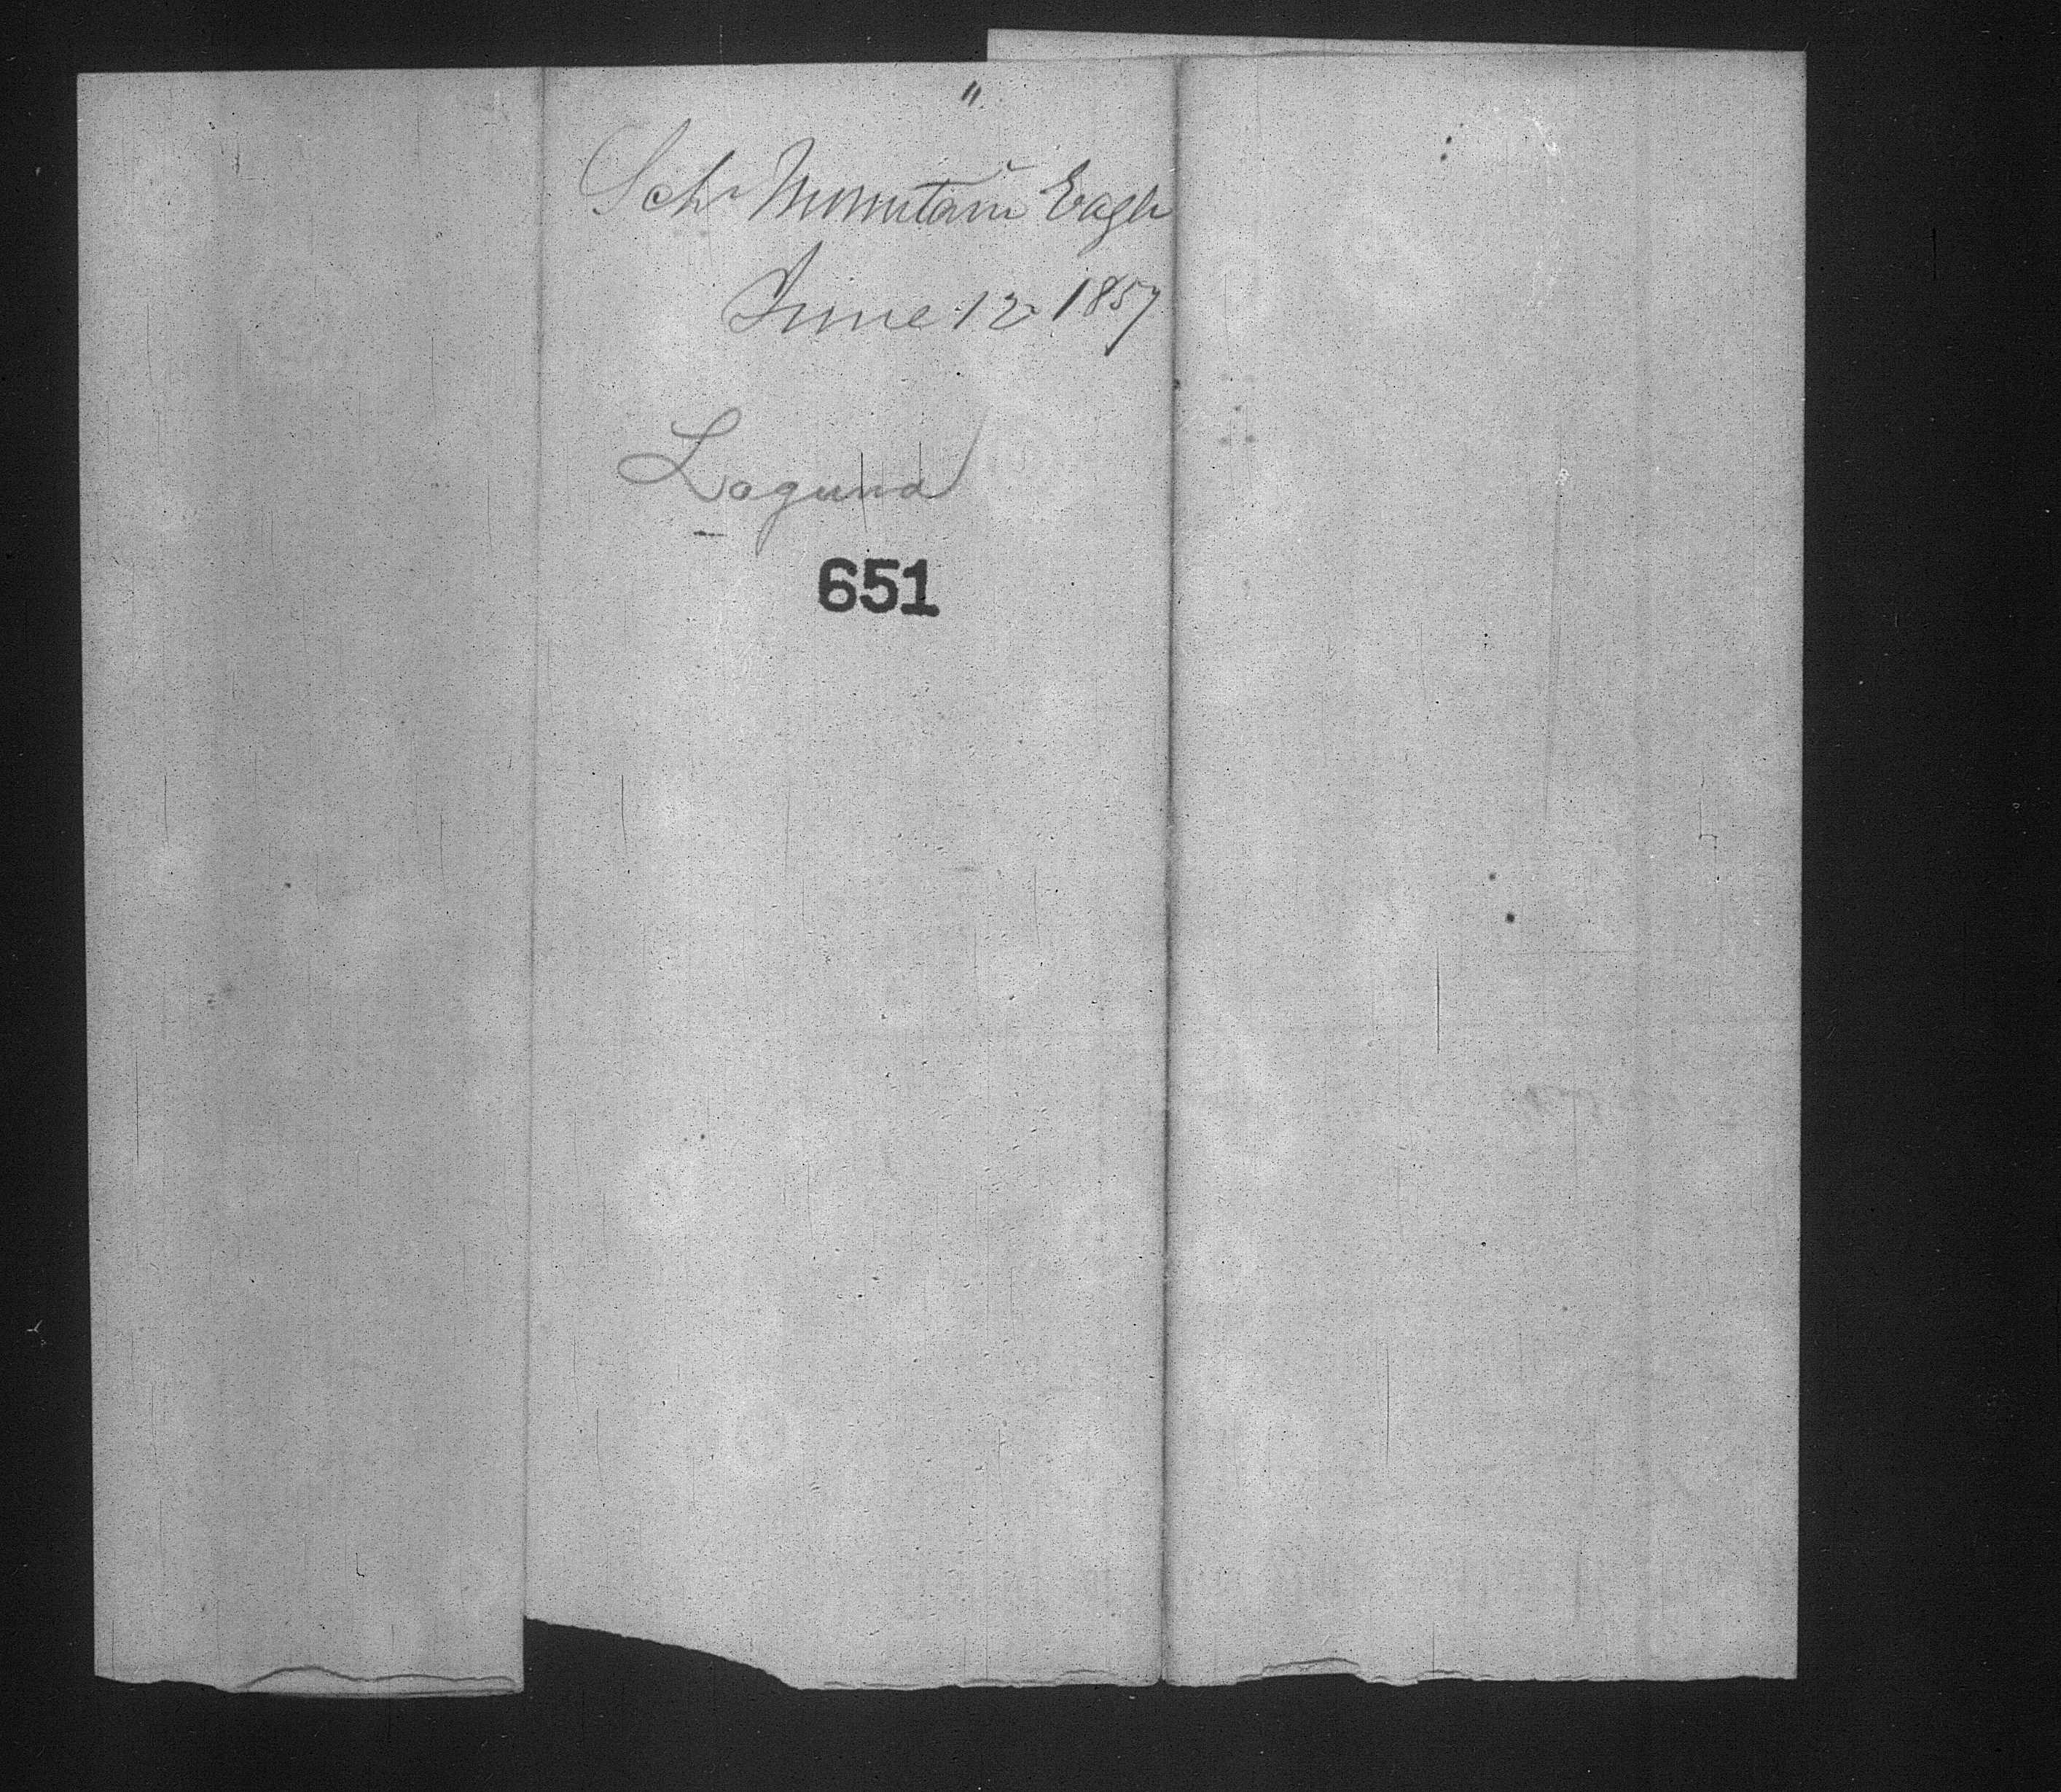 "
Schr Mountain Eagle
June 12 1857
Laguna
651